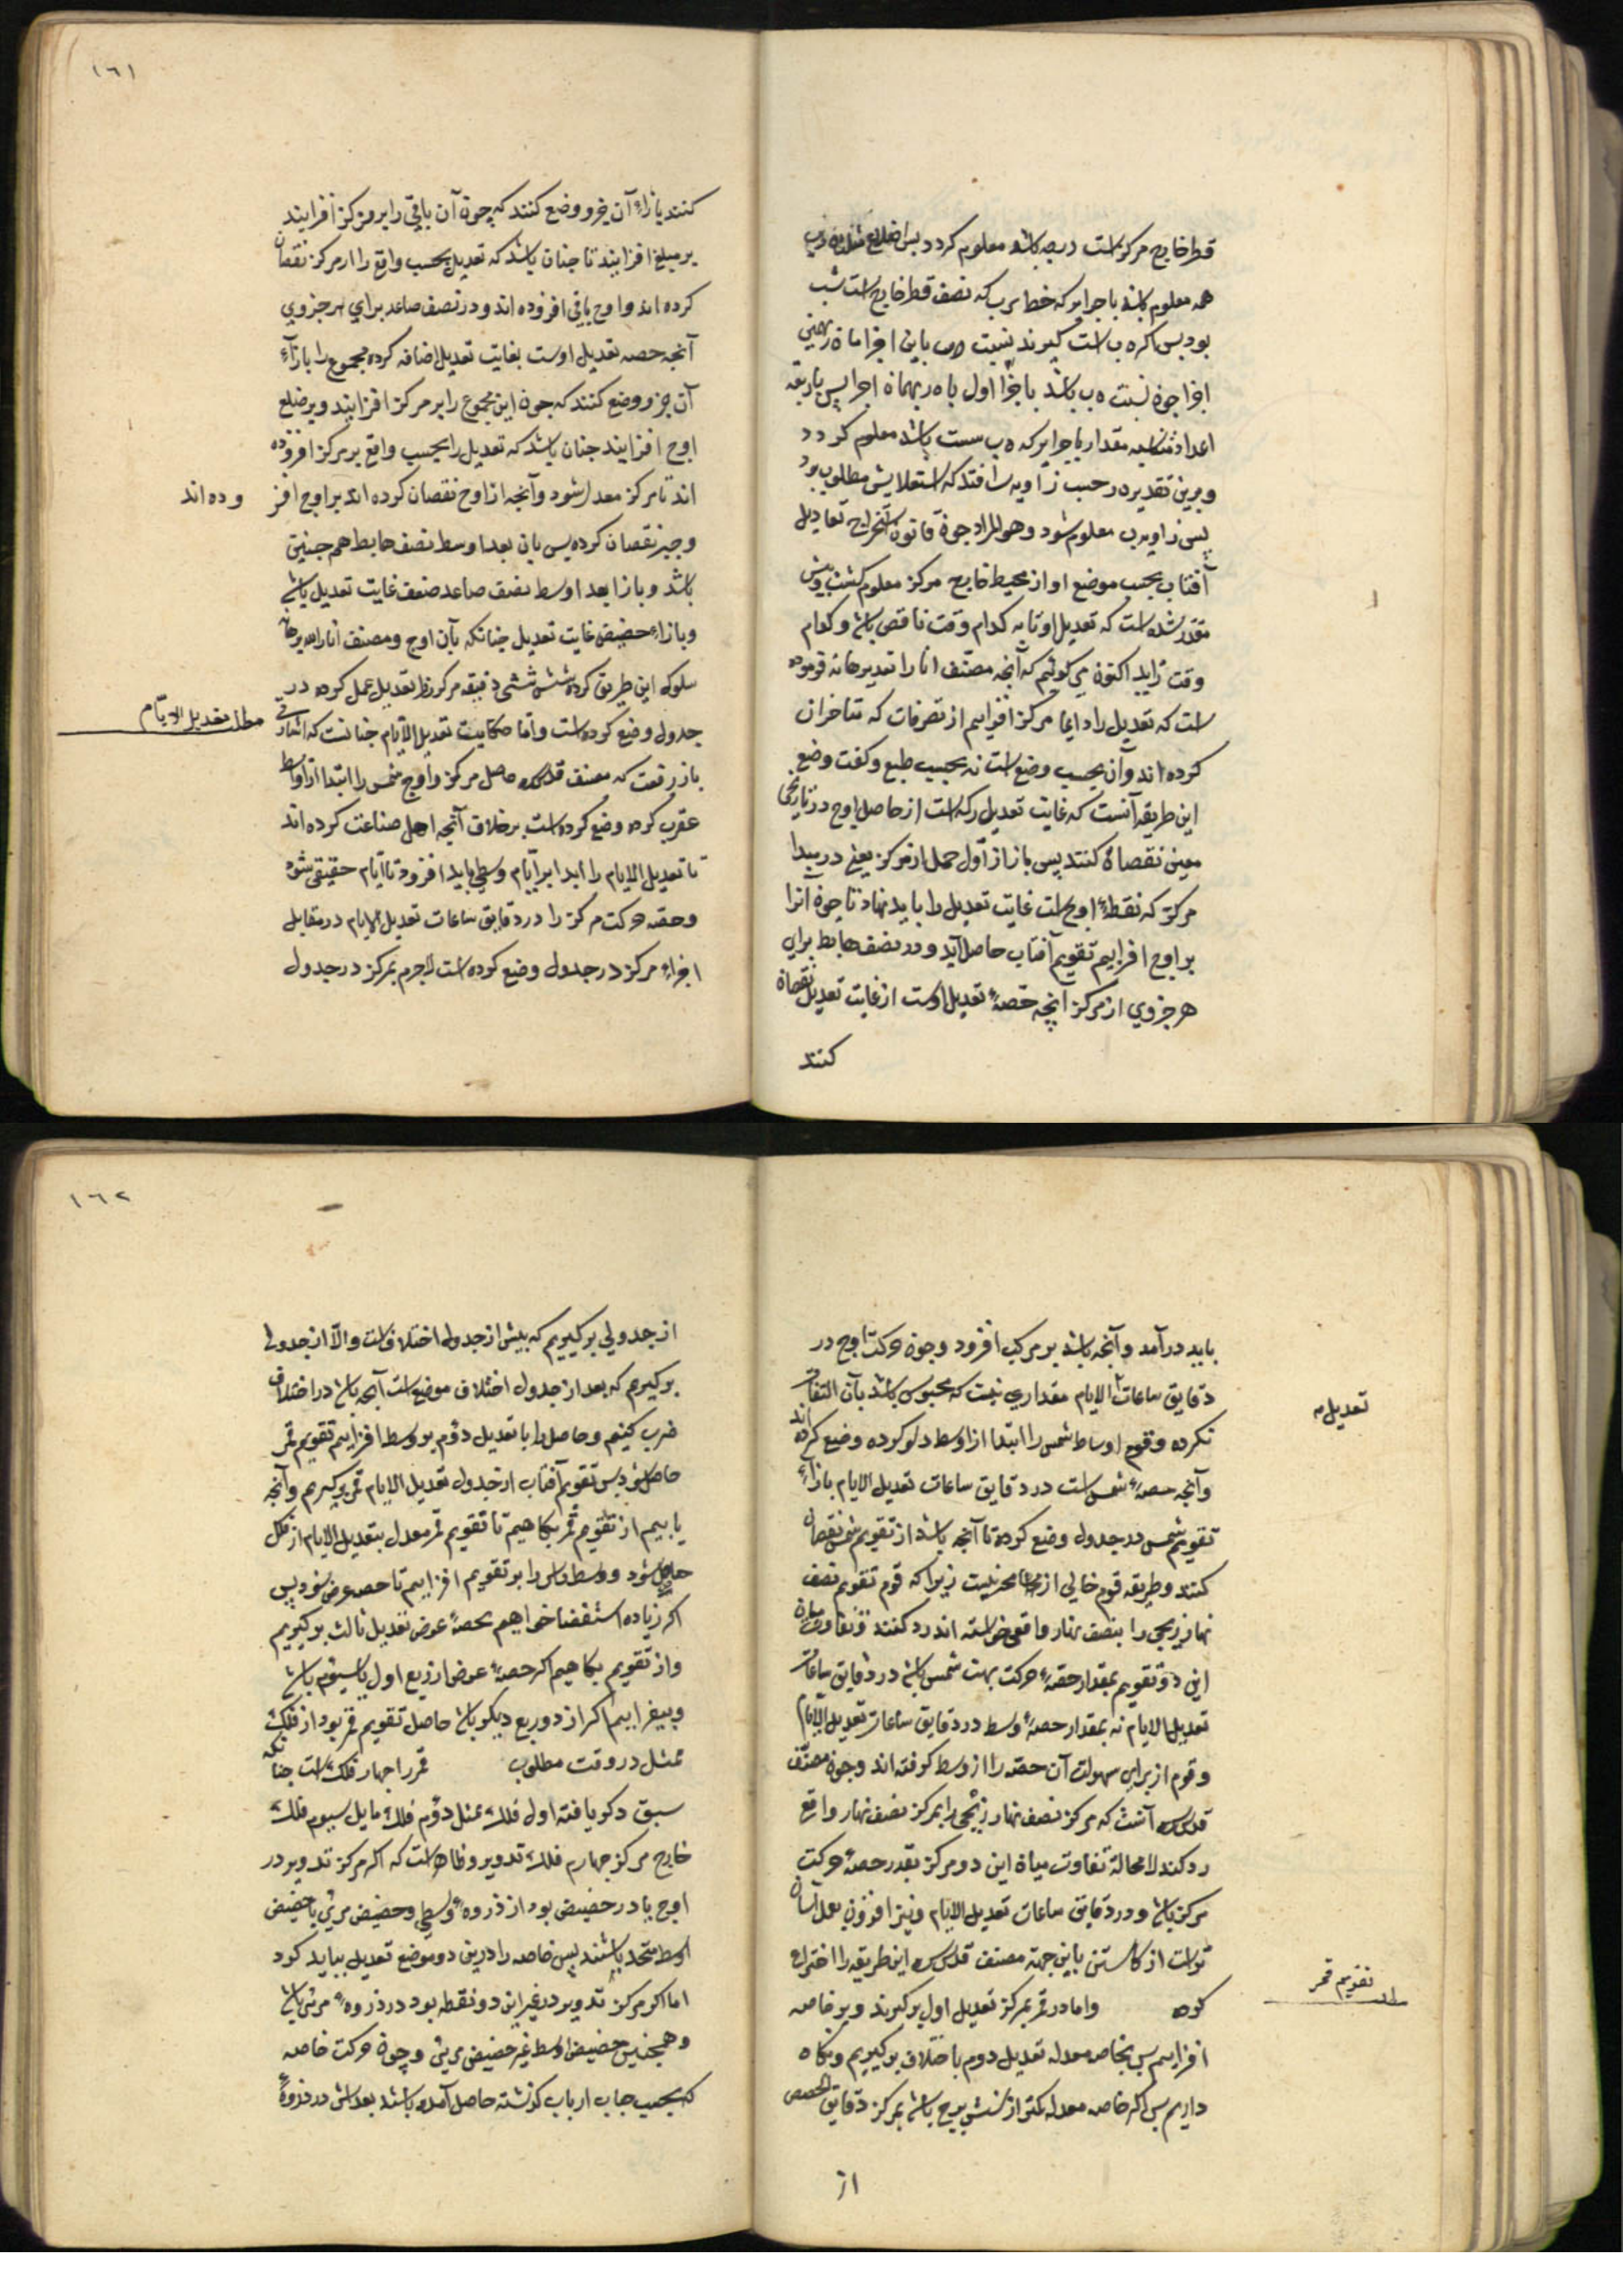 قطر خارج مرکز است دربعه باشد معلوم کردد پس اضلاع مثلث
همه معلوم باشد باجزایی که خط س ب که نصف قطر خارج است شب
بود پس اکر ه ب است کیرند نسبت باین اجزا ما ه ر یعنی
اجزا چون نسبت ه ب باشد باجزا اول با ه ر بهمان اجزا پس باربعه
اعداد متناسبه مقدار باجزایی که ه ب ست باشد معلوم کردد
وبرین تقدیر ه ر جیب زاویه س افتد که استعلایش مطلوب بود
پس زاویه س معلوم شود وهو المراد چون قانون استخراج تعادیل
آفتاب بحسب موضع او از محیط خارج مرکز معلوم کشت وپیش
مقدر شده است که تعدیل او تا به کدام وقت ناقص باشد وکدام
وقت زاید اکنون می کوئیم که آنچه مصنف انار الله برهانه فرموده
است که تعدیل را دایما بر مرکز افزاییم از تصرفات که متاخران
کرده اند وآن بحسب وضع است نه بحسب طبع وکفت وضع
این طریقه آنست که غایت تعدیل را که است از حاصل اوج در تاریخی
معین نقصان کنند پس باز از اول حمل از مرکز یعنی در مبدا
مرکز که نقطهٔ اوج است غایت تعدیل را باید نهاد تا چون آنرا
بر اوج افزاییم تقویم آفتاب حاصل آید ودر نصف هابط برای
هر جزوی از مرکز آنچه حصهٔ تعدیل اوست از غایت تعدیل نقصان
کنند
١٦١
کنند بازاء آن جزو وضع کنند که چون آن باقی را بر مرکز افزایند
بر مبلغ افزایند تا چنان باشد که تعدیل بحسب واقع را از مرکز نقصان
کرده اند واوج باقی افزوده اند ودر نصف صاعد برای هر جزوی
آنچه حصه تعدیل اوست بغایت تعدیل اضافه کرده مجموع را بازاء
آن جزو وضع کنند که چون این مجموع را بر مرکز افزایند وبر ضلع
اوج افزایند چنان باشد که تعدیل را بحسب واقع بر مرکز افزوده
اند تا مرکز معدل شود وآنچه از اوج نقصان کرده اند بر اوج افز وده اند
وجبر نقصان کرده پس بازا بعد اوسط نصف هابط هم چنین
باشد وبازا بعد اوسط نصف صاعد ضعف غایت تعدیل باشد
وبازاء حضیض غایت تعدیل چنانکه بآن اوج ومصنف انار الله برهانه
سلوک این طریق کرده شش شش دقیقه مرکز را تعدیل عمل کرده در
مطلب تعدیل الایام
جدول وضع کرده است واما حکایت تعدیل الایام چنانست که اشارتی
باز رفت که مصنف قدس سره حاصل مرکز واوج شمس را ابتدا از اواسط
عقرب کرده وضع کرده است بر خلاف آنچه اهل صناعت کرده اند
تا تعدیل الایام را ابدا بر ایام وسطی باید افزود تا ایام حقیقی شود
وحصه حرکت مرکز را در دقایق ساعات تعدیل الایام در مقابل
اجزاء مرکز در جدول وضع کرده است لاجرم بمرکز در جدول
باید درآمد وآنچه باشد بر مرکب افزود وچون حرکت اوج در
دقایق ساعات الایام مقداری نیست که محسوس باشد بآن التفات
تعدیل
نکرده وقوم اوساط شمس را ابتدا از اوسط دلو کرده وضع کرده اند
وآنچه حصهٔ شمس است در دقایق ساعات تعدیل الایام بازاء
تقویم شمس در جدول وضع کرده تا آنچه باشد از تقویم شمس نقصان
کنند وطریقه قوم خالی از نیست زیرا که قوم تقویم نصف
نهار زیجی را بنصف نهار واقعی خواسته اند رد کنند وتفاوت میان
این دو تقویم بمقدار حصهٔ حرکت بهت شمس باشد در دقایق ساعات
تعدیل الایام نه بمقدار حصهٔ وسط در دقایق ساعات تعدیل الایام
وقوم از برای سهولت آن حصه را از وسط کرفته اند وچون مصنف
قدس سره آنست که مرکز نصف نهار زیجی را بمرکز نصف نهار واقع
رد کند لا محالة تفاوت میان این دو مرکز بقدر حصهٔ حرکت
مرکز باشد ودر دقایق ساعات تعدیل الایام ونیز افزودن بعمل آسان
تر است از کاستن باین جهة مصنف قدس سره این طریقه را اختراع
تقویم قمر
کرده واما در قمر بمرکز تعدیل اول برکیرند وبر خاصه
افزاییم پس بخاصه معدله تعدیل دوم با اختلاف برکیریم ونکاه
داریم پس اکر خاصه معدله کمتر از شش برج باشد بمرکز دقایق الحصص
از
١٦٢
از جدولی برکیریم که پیش از جدول اختلاف است والا از جدولی
برکیریم که بعد از جدول اختلاف موضع است آنچه باشد در اختلاف
ضرب کنیم وحاصل را با تعدیل دوم بر وسط افزاییم تقویم قمر
حاصل شود پس بتقویم آفتاب از جدول تعدیل الایام قمر برکیریم وآنچه
یابیم از تقویم قمر بکاهیم تا تقویم قمر معدل بتعدیل الایام از فلک
حاصل شود ووسط راس را بر تقویم افزاییم تا حصه عرض شود پس
اکر زیاده استقصا خواهیم بحصهٔ عرض تعدیل ثالث برکیریم
واز تقویم بکاهیم اکر حصهٔ عرض از ربع اول یا سیوم باشد
وبیفزاییم اکر از دو ربع دیکر باشد حاصل تقویم قمر بود از فلک
ممثل در وقت مطلوب قمر را چهار فلک است چنانکه
سبق ذکر یافته اول فلک ممثل دوم فلک مایل سیوم فلک
خارج مرکز چهارم فلک تدویر وظاهر است که اکر مرکز تدویر در
اوج یا در حضیض بود از ذروه وسطی وحضیض مرئی با حضیض
اوسط متحد باشند پس خاصه را درین دو موضع تعدیل نباید کرد
اما اکر مرکز تدویر در غیر این دو نقطه بود در ذروهٔ مرئی باشد
وهمچنین حضیض اوسط غیر حضیض مرئی وچون حرکت خاصه
که بحسب حساب ارباب کذشته حاصل آمده باشد بعدش در ذروهٔ